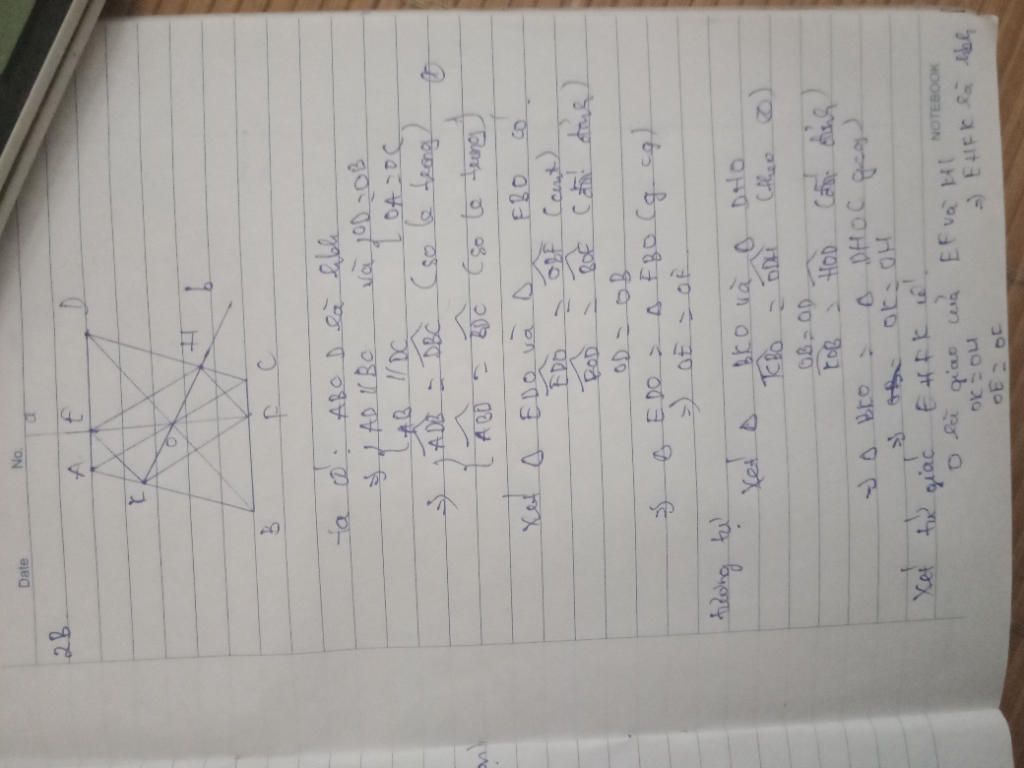 Date
No.
2B.
A
E
a
D
K
O
H
b
B
F
C
Ta có: ABCD là hbh
=> { AD // BC và { OD = OB
AB // DC OA = OC
=> { ADB = DBC (so le trong) ⊗
ABD = BDC (so le trong)
Xét Δ EDO và Δ FBO có
EDO = OBF (cmt)
EOD = BOF (đối đỉnh)
OD = OB
=> Δ EDO = Δ FBO (g-cg)
=> OE = OF
tương tự
Xét Δ BKO và Δ DHO
KBO = ODH (theo ⊗)
OB = OD
KOB = HOD (đối đỉnh)
=> Δ BKO = Δ DHO (gcg)
=> OK = OH
Xét tứ giác EHFK có
O là giao của EF và HK
OK = OH
OE = OF => EHFK là hbh
NOTEBOOK